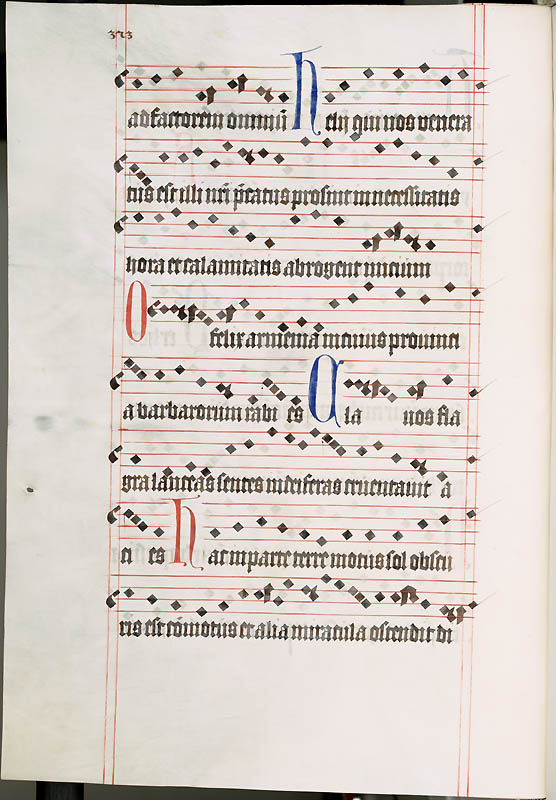 323
ad factorem omniũ Helij qui nos venera
tus est illi nr̃i p̃catus prosint in necessitatis
hora et calamitatis abrogent
O felix armenia in cuiũs prouinci
a barbarorum rabi es Ala nos fla
gra lanceas sentes mortiferas cruentauit a
ci es Hac in parte terre motus sol obscu
ris est cõmotus et alia miracula ostendit di